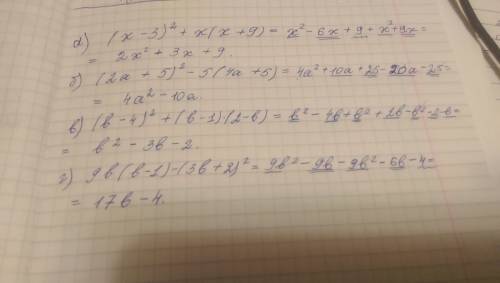 а) (x-3)² + x(x+9) = x² - 6x + 9 + x² + 9x =
= 2x² + 3x + 9.
б) (2a + 5)² - 5(4a + 5) = 4a² + 10a + 25 - 20a - 25 =
= 4a² - 10a.
в) (b-4)² + (b-1)(2-b) = b² - 4b + b² + 2b - b² - 2 - b =
= b² - 3b - 2.
г) 9b(b-1) - (3b+2)² = 9b² - 9b - 9b² - 6b - 4 =
= 17b - 4.